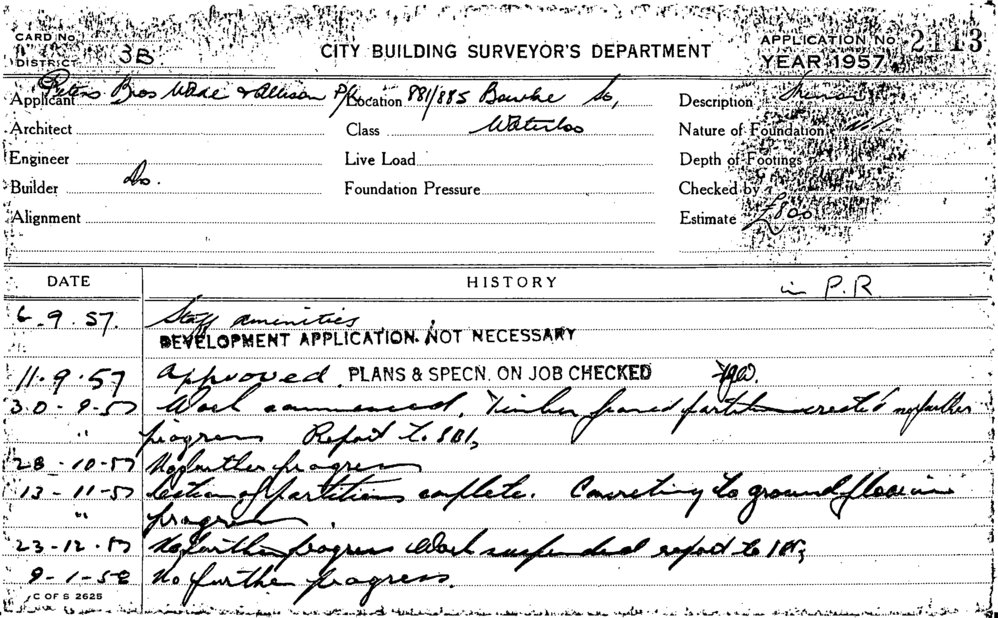 CARD No.
DISTRICT 3B
CITY BUILDING SURVEYOR'S DEPARTMENT
APPLICATION No. 2113
YEAR 1957
Applicant Peters Bros Wade & Allison P/L
Location 881/885 Bourke St,
Description
Architect
Class Waterloo
Nature of Foundation
Engineer
Live Load
Depth of Footings
Builder Do.
Foundation Pressure
Checked by
Alignment
Estimate £800
DATE
HISTORY
in P.R
6.9.57. Staff amenities
DEVELOPMENT APPLICATION NOT NECESSARY
11.9.57 Approved. PLANS & SPECN. ON JOB CHECKED
30-9-57 Work commenced. Timber framed partition erected no further
" progress Report to SBI,
28-10-57 No further progress
13-11-57 Section of partitions complete. Concreting to ground floor in
" progress.
23-12-57 No further progress Work suspended report to
9-1-58 No further progress.
C OF S 2625